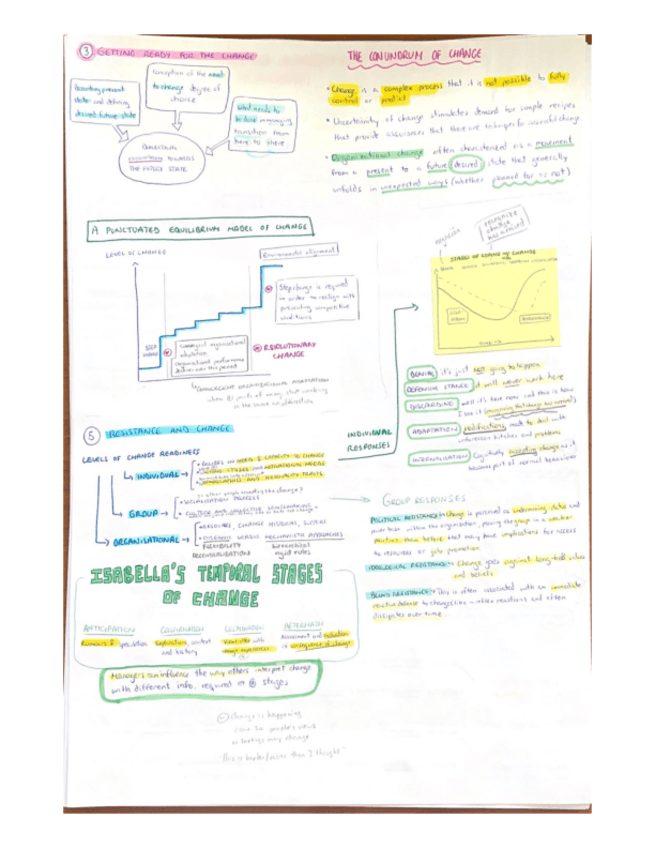 ③ GETTING READY FOR THE CHANGE
describing present
state and defining
desired future state
conception of the need
to change degree of
choice
what needs to
be done managing
transition from
here to there
TOWARDS
THE FUTURE STATE
THE CONUNDRUM OF CHANGE
• Change is a complex process that it is not possible to fully
control or predict
• Uncertainty of change stimulates demand for simple recipes
that provide assurances that there are techniques for successful change
• Organisational change often characterised as a movement
from a present to a future desired state that generally
unfolds in unexpected ways (whether planned for or not)
A PUNCTUATED EQUILIBRIUM MODEL OF CHANGE
LEVEL OF CHANGE
Environmental alignment
Step change is required
in order to realign with
prevailing competitive
conditions
STEP
CHANGE
Convergent organisational
adaptation
Organisational performance
declines over this period
REVOLUTIONARY
CHANGE
CONVERGENT ORGANISATIONAL ADAPTATION
when all parts of many start working
in the same direction
recognise
change
has occurred
STAGES OF COPING W/ CHANGE
TIME
DENIAL it's just NOT going to happen
DEFENCE STAGE it will never work here
DISCARDING well it's here now and this is how
I see it (recognising that change has occurred)
ADAPTATION modifications made to deal with
unforeseen hitches and problems
INTERNALISATION Cognitively accepting change as it
becomes part of normal behaviour
INDIVIDUAL
RESPONSES
⑤ RESISTANCE AND CHANGE
LEVELS OF CHANGE READINESS
INDIVIDUAL
NEEDS & CAPACITY TO CHANGE
COPING STYLES AND MOTIVATIONAL NEEDS
AND PERSONALITY TRAITS
GROUP
SOCIALISATION PROCESS
CULTURE AND COLLECTIVE
ORGANISATIONAL
RESOURCES, CHANGE HISTORIES, SYSTEMS
ORGANIC VERSUS MECHANISTIC APPROACHES
FLEXIBILITY hierarchical
DECENTRALISATION rigid rules
GROUP RESPONSES
POLITICAL RESISTANCE Change is perceived as undermining status and
power base within the organisation, placing the group in a weaker
position than before that may have implications for access
to resources or job promotion
IDEOLOGICAL RESISTANCE Change goes against long-held values
and beliefs
BLIND RESISTANCE This is often associated with an immediate
reactive defense to change
dissipates over time
ISABELLA'S TEMPORAL STAGES
OF CHANGE
ANTICIPATION CONFIRMATION CULMINATION AFTERMATH
Rumours & speculation
and history
change experiences
Assessment and evaluation
consequence of change
Managers can influence the way others interpret change
with different info required at ④ stages
change is happening
now so people's views
or feelings may change
"this is harder/nicer than I thought"